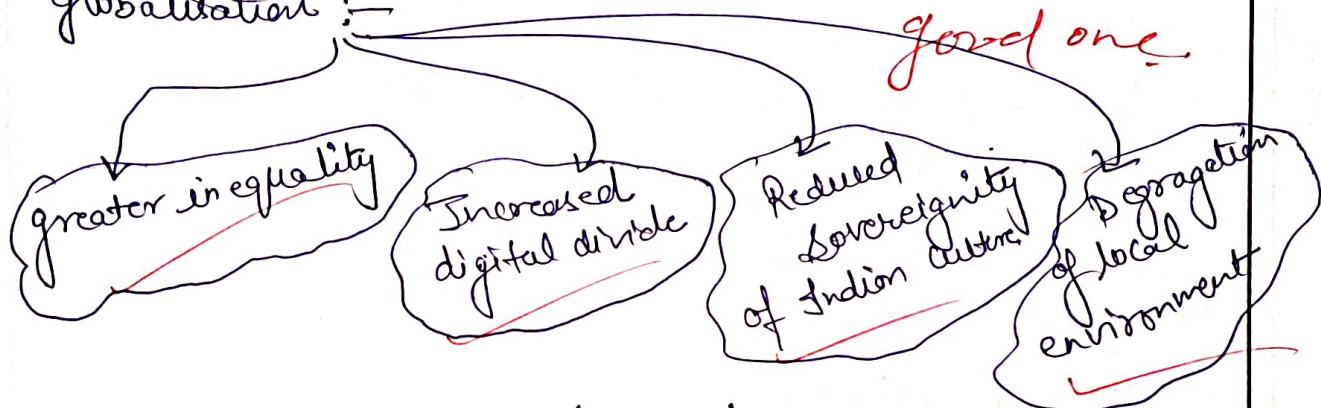 globalisation :-
good one
greater inequality
Increased
digital divide
Reduced
Sovereignity
of Indian Culture
Degragation
of local
environment